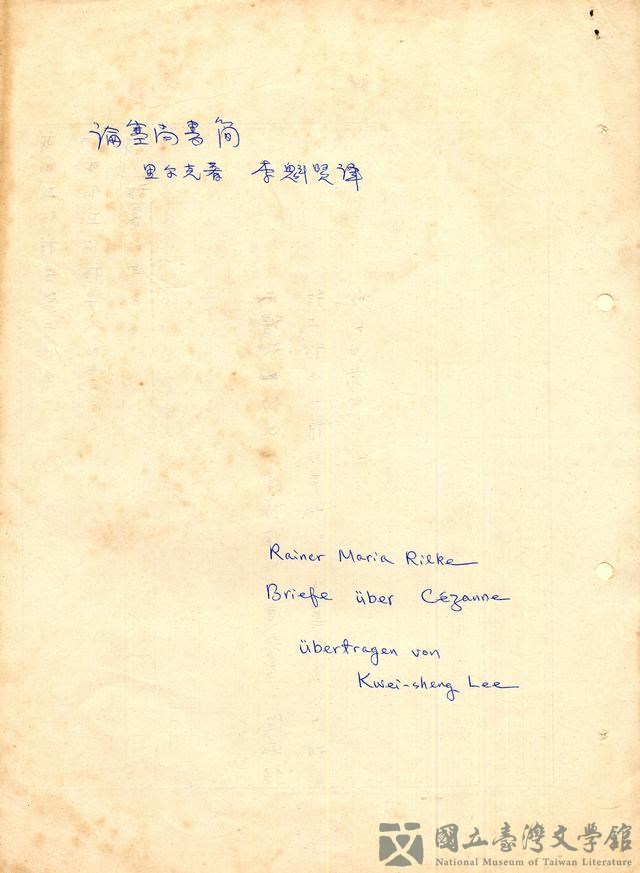 論塞尚書简
里尔克著 李魁賢譯
Rainer Maria Rilke
Briefe über Cézanne
übertragen von
Kwei-sheng Lee
國立臺灣文學館
National Museum of Taiwan Literature